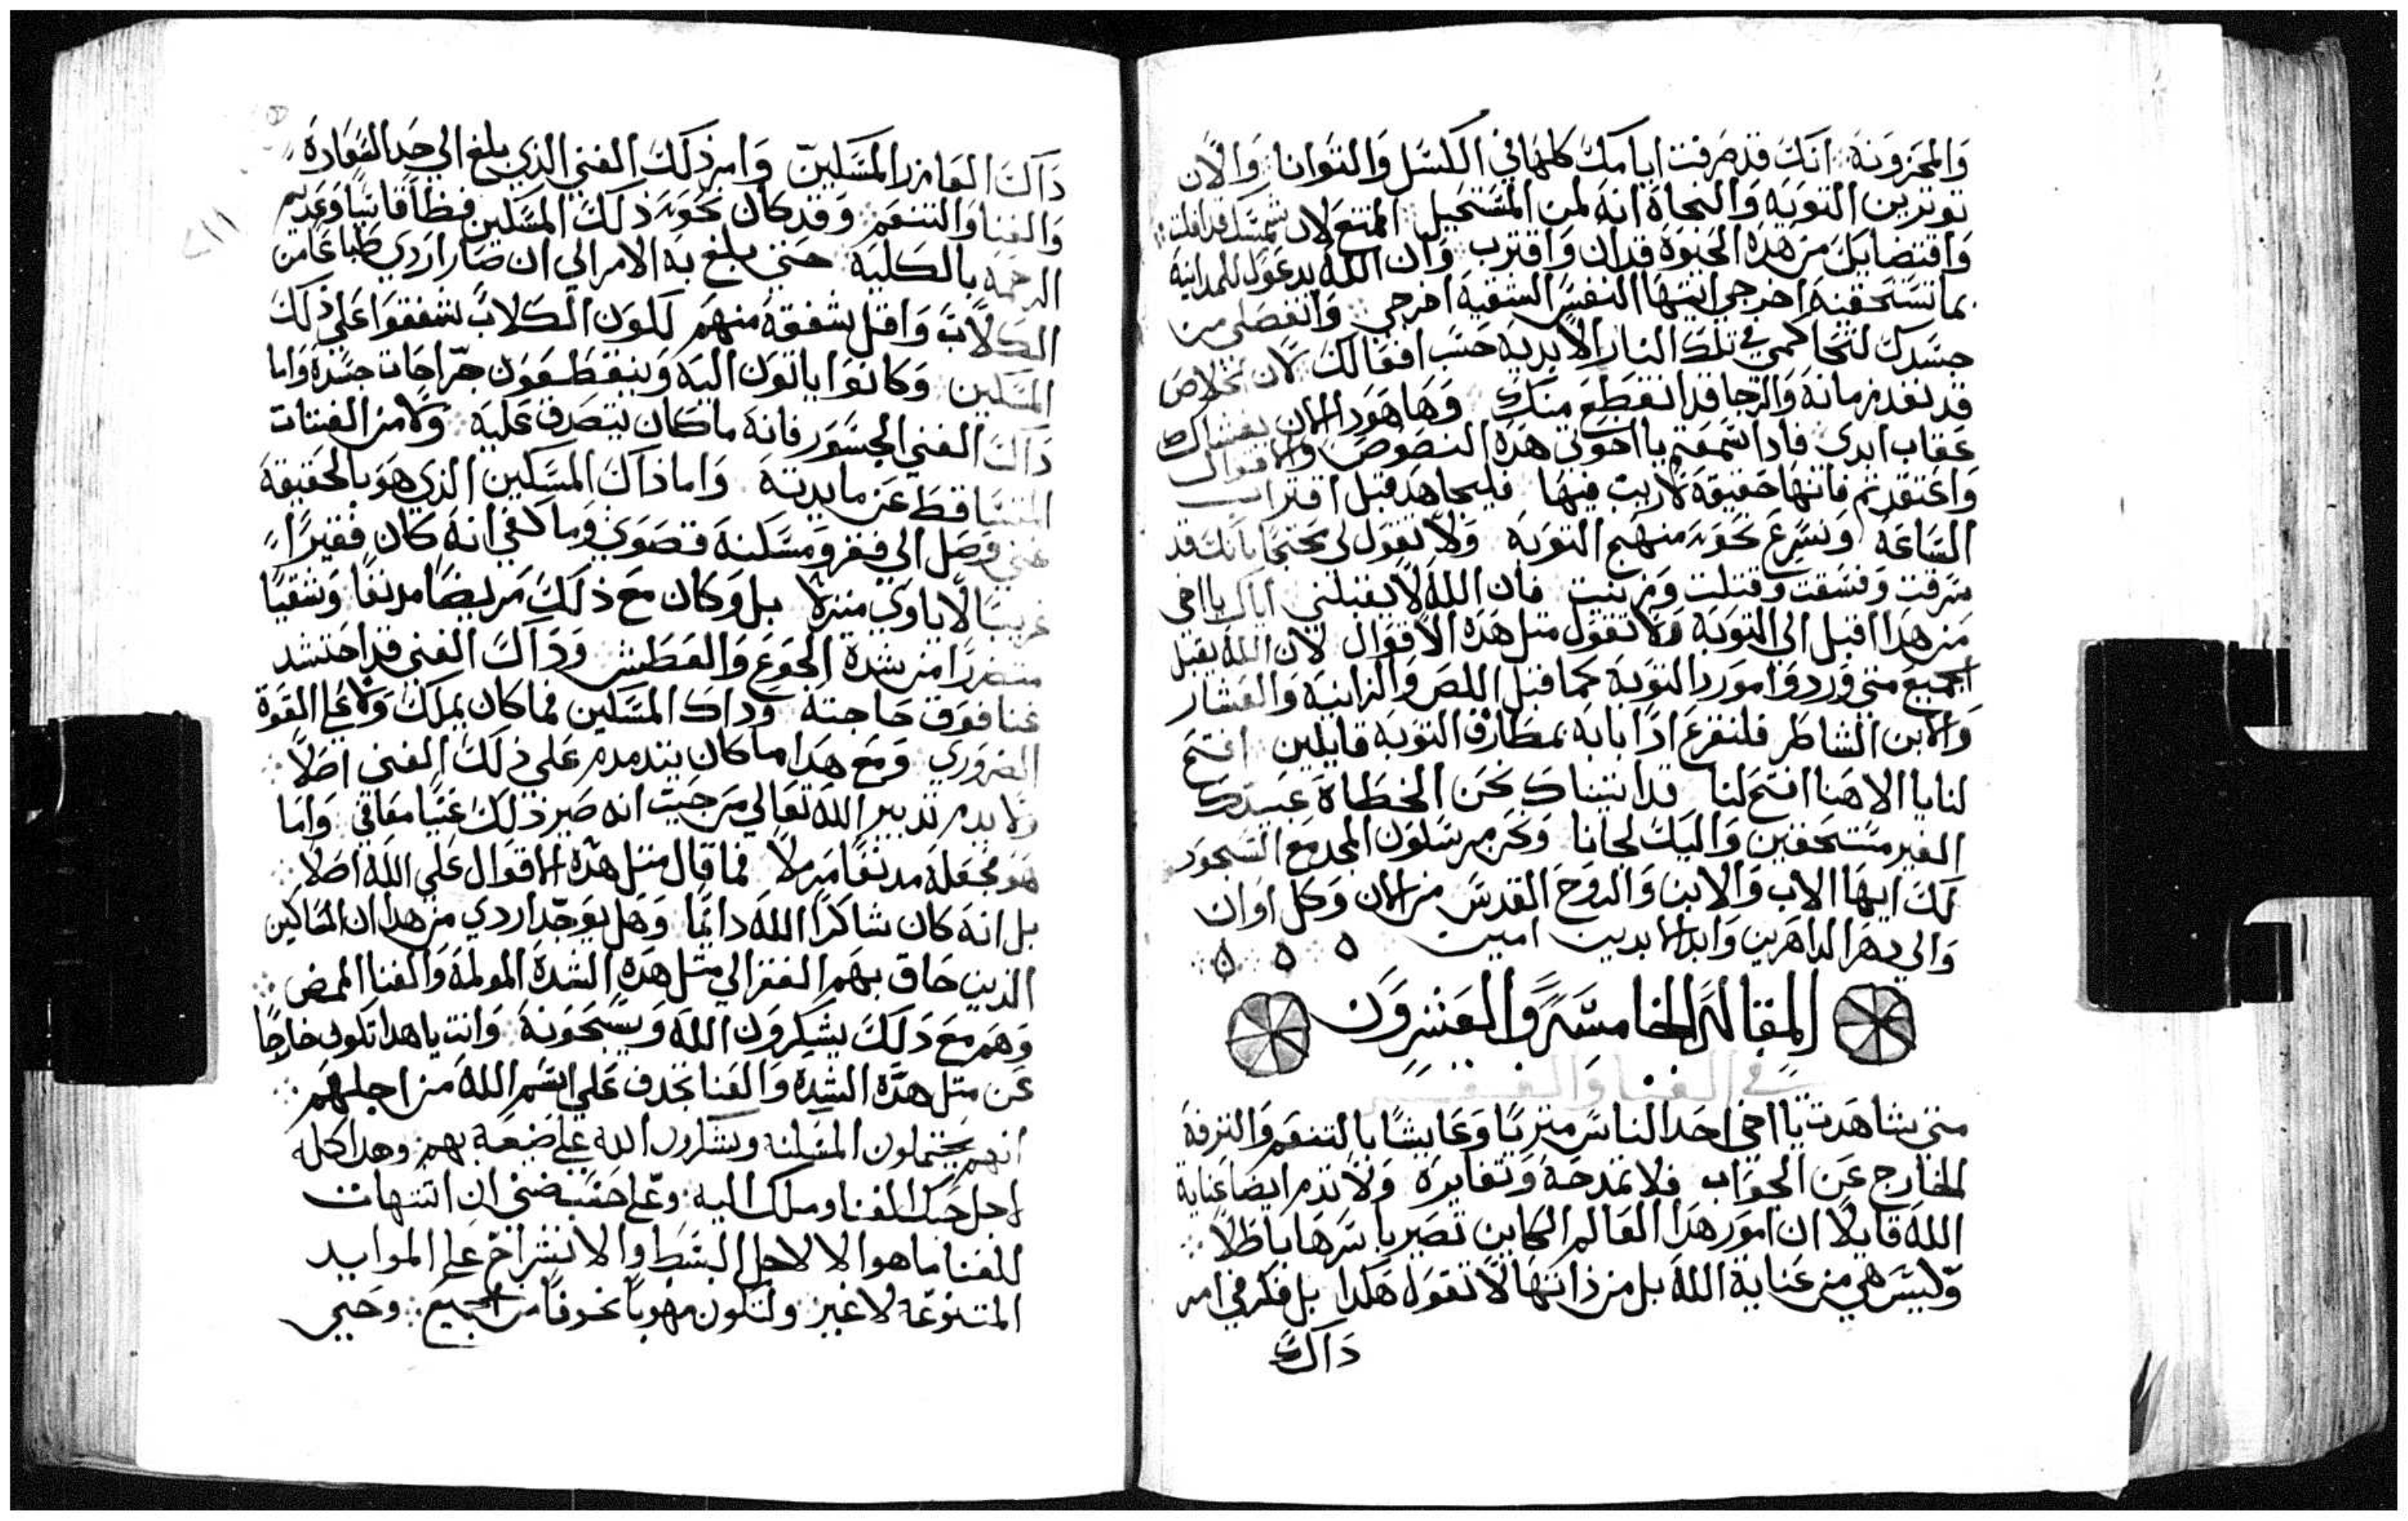 والمحزونة انك قد صرفت ايامك كلها في الكسل والتوانا والان
توترين التوبة والنجاة انه لمن المستحيل الممتنع لان شمسك قد افلت
واقتضا بك من هذه الحيوة قد ان واقترب وان الله يدعوك للمداينة
بما تستحقينه اخرجي ايتها النفس الشقية اخرجي وانفصلي من
جسدك لتحاكمي في تلك النار الابدية حسب افعالك لان خلاص
قد نفد زمانه والرجا قد انقطع منك وها هودا الان يغشاك
عقاب ابدى فادا سمعتم يا اخوتي هذه النصوص والاقوال
واعتقدتم فانها حقيقة لا ريب فيها فليجاهد قبل اقتراب
الساعة ونسرع نحو منهج التوبة ولا تقول لي محتجا بانك قد
سرقت وفسقت وقتلت وزنيت فان الله لا يقبلني اياك يا اخي
من هدا اقبل الى التوبة ولا تقول مثل هده الاقوال لان الله يقبل
الجميع متى وردوا مورد التوبة كما قبل اللص والزانية والعشار
والابن الشاطر فلنقرع ادًا بابه بمطارق التوبة قايلين افتح
لنا يا الاهنا افتح لنا قد اتيناك نحن الخطاة عبيدك
الغير مستحقين واليك لجانا ونحن مرسلون المجد مع السجود
لك ايها الاب والابن والروح القدس من الان وكل اوان
والي دهر الداهرين وابد الابدين امين
المقالة الخامسة والعشرون
في الغنا والفقر
متى شاهدت يا اخي احد الناس متربًا وعايشًا بالتنعم والترفه
الخارج عن الجواب فلا تمدحه وتغايره ولا تذم ايضا عناية
الله قايلًا ان امور هدا العالم الكاين تصير باسرها باطلًا
وليس هي من عناية الله بل من ذاتها لا تقول هكدا بل فكر في امر
داك
داك العازر المسكين وامر ذلك الغني الذي بلغ الي حد السعادة
والغنا والتنعم وقد كان نحو ذلك المسكين فظًا قاسيًا وعديم
الرحمه بالكلية حتي بلغ به الامر الي ان صار اردي طباعًا من
الكلاب واقل شفقة منهم لكون الكلاب شفقوا علي ذلك
المسكين وكانوا ياتون اليه وينقطعون جراحات جسده واما
داك الغني الجسور فانه ماكان يتصدق عليه ولا من الفتات
المتساقط عن مايدته واما ذاك المسكين الذي هو بالحقيقة
غني وصل الي فقر ومسكنة قصوي وما كفي انه كان فقيرًا
غريبًا لا ياوي منزلا بل وكان مع ذلك مريضًا مدنفًا وشقيًا
متضررًا من شدة الجوع والعطش وداك الغني قد احتشد
غنا فوق حاجته وداك المسكين فما كان يملك ولا علي القوة
الضروري ومع هدا ما كان يتدمدم علي ذلك الغني اصلًا
ولا يدم تدبير الله تعالي من حيث انه صير ذلك غنيًا معافي واما
هو فجعله مدنفًا مرملًا فما قال مثل هده الاقوال علي الله اصلًا
بل انه كان شاكرًا الله دايمًا وهل يوجد اردي من هدا ان المساكين
الدين حاق بهم الفقر الي مثل هده الشدة المولمة والعنا الممض
وهم مع دلك يشكرون الله ويسبحونه وانت يا هدا تكون خارجًا
عن مثل هده الشدة والعنا تجدف علي اسم الله من اجلهم
انهم يحتملون المسكنه ويشكرون الله علي ضيعة بهم وهدا كله
لاجل حبك للغنا وملك اليه وعلي حسب ضني ان اشتهات
للغنا ما هوا الا لاجل البسط والانشراح علي الموايد
المتنوعه لا غير ولتكون مهوبًا مخوفًا من الجميع وحيي